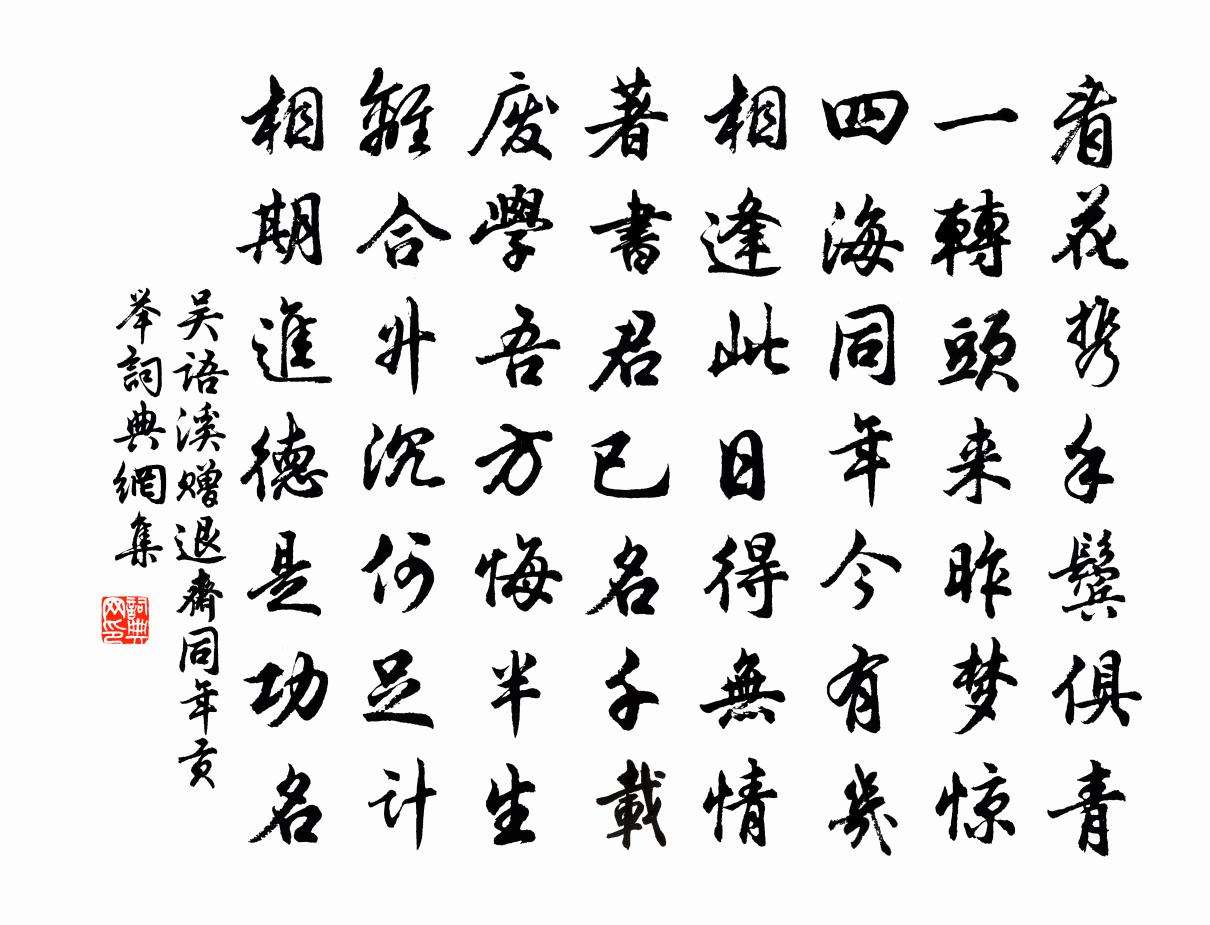 看花携手鬓俱青
一轉頭来昨梦惊
四海同年今有幾
相逢此日得無情
著書君已名千載
废學吾方悔半生
離合升沉何足计
相期進德是功名
吴语溪赠退齋同年贡
举詞典網集
詞典
网印